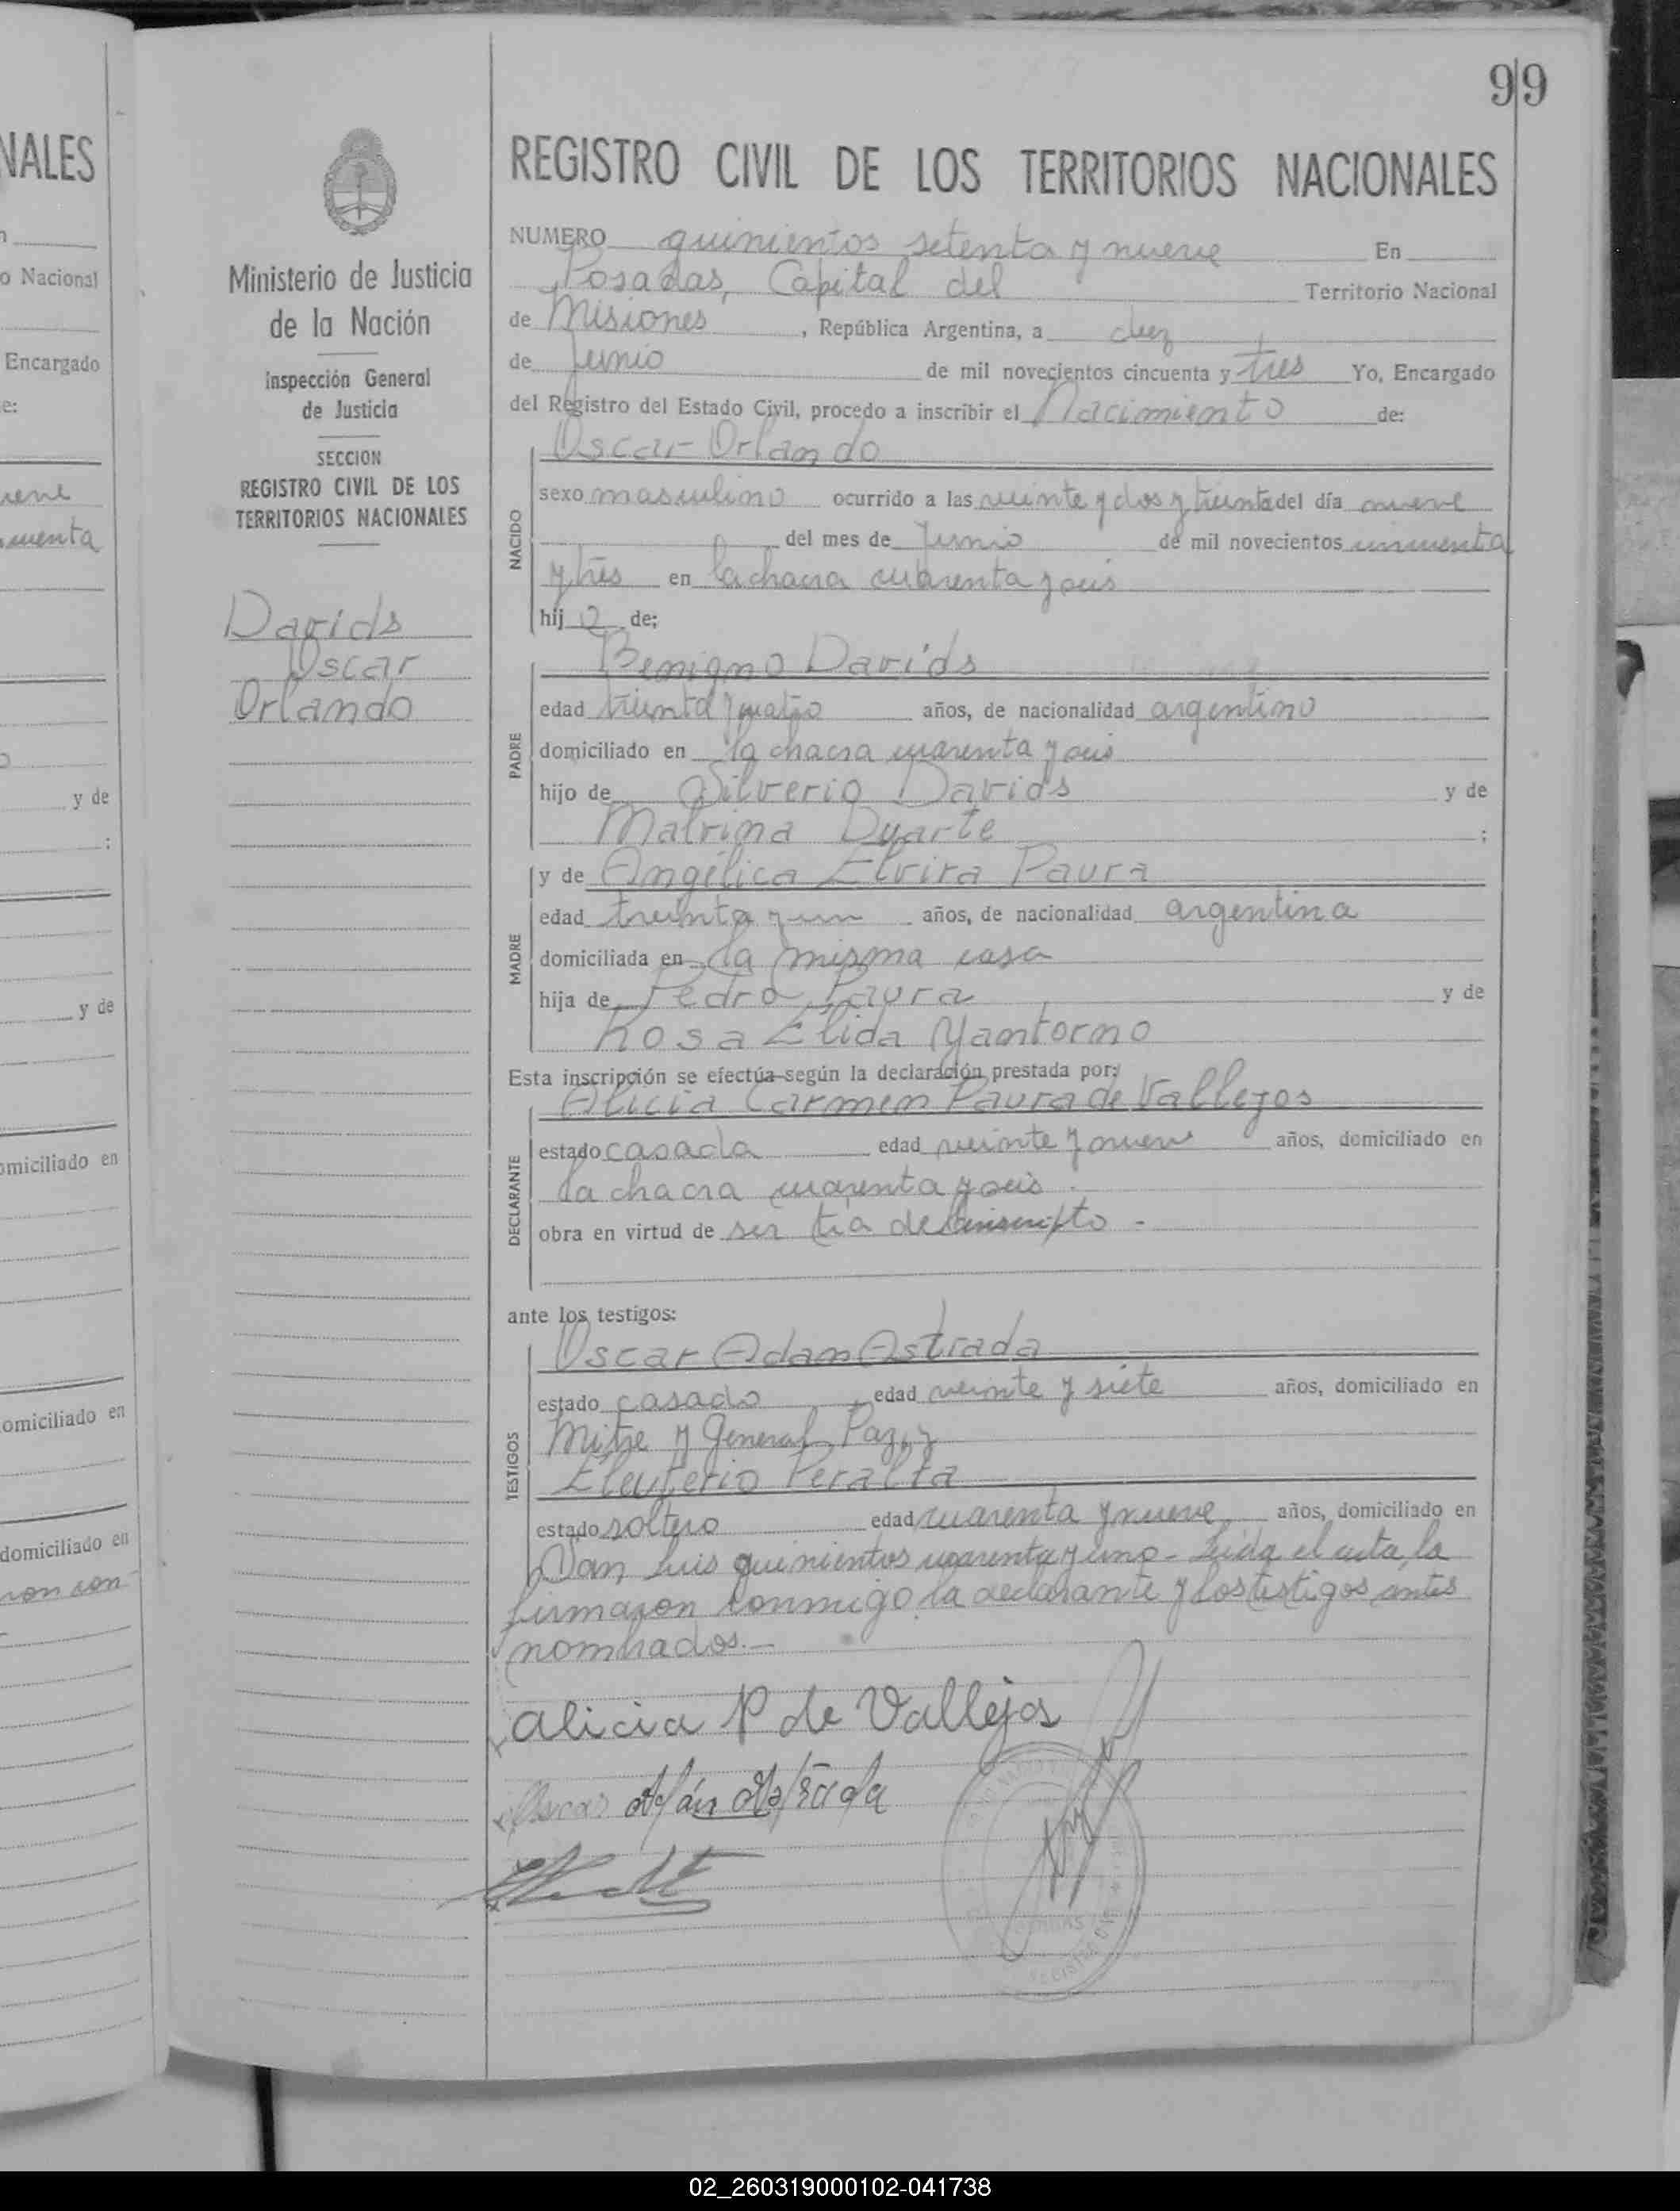 99
NALES
n
o Nacional
Encargado
e:
y de
:
y de
omiciliado en
omiciliado en
domiciliado en
Ministerio de Justicia
de la Nación
Inspección General
de Justicia
SECCION
REGISTRO CIVIL DE LOS
TERRITORIOS NACIONALES
Davids
Oscar
Orlando
REGISTRO CIVIL DE LOS TERRITORIOS NACIONALES
NUMERO quinientos setenta y nueve En
Posadas, Capital del Territorio Nacional
de Misiones, República Argentina, a diez
de Junio de mil novecientos cincuenta y tres Yo, Encargado
del Registro del Estado Civil, procedo a inscribir el Nacimiento de:
NACIDO
Oscar Orlando
sexo masculino ocurrido a las veinte y dos y treinta del día nueve
del mes de Junio de mil novecientos cincuenta
y tres en la chacra cuarenta y seis
hijo de;
PADRE
Benigno Davids
edad treinta y cuatro años, de nacionalidad argentino
domiciliado en la chacra cuarenta y seis
hijo de Silverio Davids y de
Malvina Duarte ;
MADRE
y de Angélica Elvira Paura
edad treinta y un años, de nacionalidad argentina
domiciliada en la misma casa
hija de Pedro Paura y de
Rosa Elida Yantorno
Esta inscripción se efectúa según la declaración prestada por:
DECLARANTE
Alicia Carmen Paura de Vallejos
estado casada edad veinte y nueve años, domiciliado en
la chacra cuarenta y seis.
obra en virtud de ser tía del inscripto -
ante los testigos:
TESTIGOS
Oscar Adam Astrada
estado casado edad veinte y siete años, domiciliado en
Mitre y General Paz, y
Eleuterio Peralta
estado soltero edad cuarenta y nueve años, domiciliado en
San Luis quinientos cuarenta y uno - Leida el acta, la
firmaron conmigo la declarante y los testigos antes
nombrados.-
Alicia P de Vallejos
Oscar Adán Astrada
02_260319000102-041738